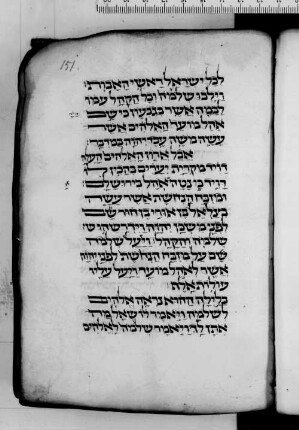 151
לכל ישראל ראשי האבות
וילכו שלמה וכל הקהל עמו
לבמה אשר בגבעון כי שם
אהל מועד האלהים אשר
עשה משה עבד יהוה במדבר
אבל ארון האלהים העלה
דויד מקרית יערים בהכין
דויד כי נטה אהל בירושלם
ומזבח הנחשת אשר עשה
בצלאל בן אורי בן חור שם
לפני משכן יהוה וידרשהו
שלמה והקהל ויעל שלמה
שם על מזבח הנחשת לפני יהוה
אשר לאהל מועד ויעל עליו
עלות אלף
בלילה ההוא נראה אלהים
לשלמה ויאמר לו שאל מה
אתן לך ויאמר שלמה לאלהים